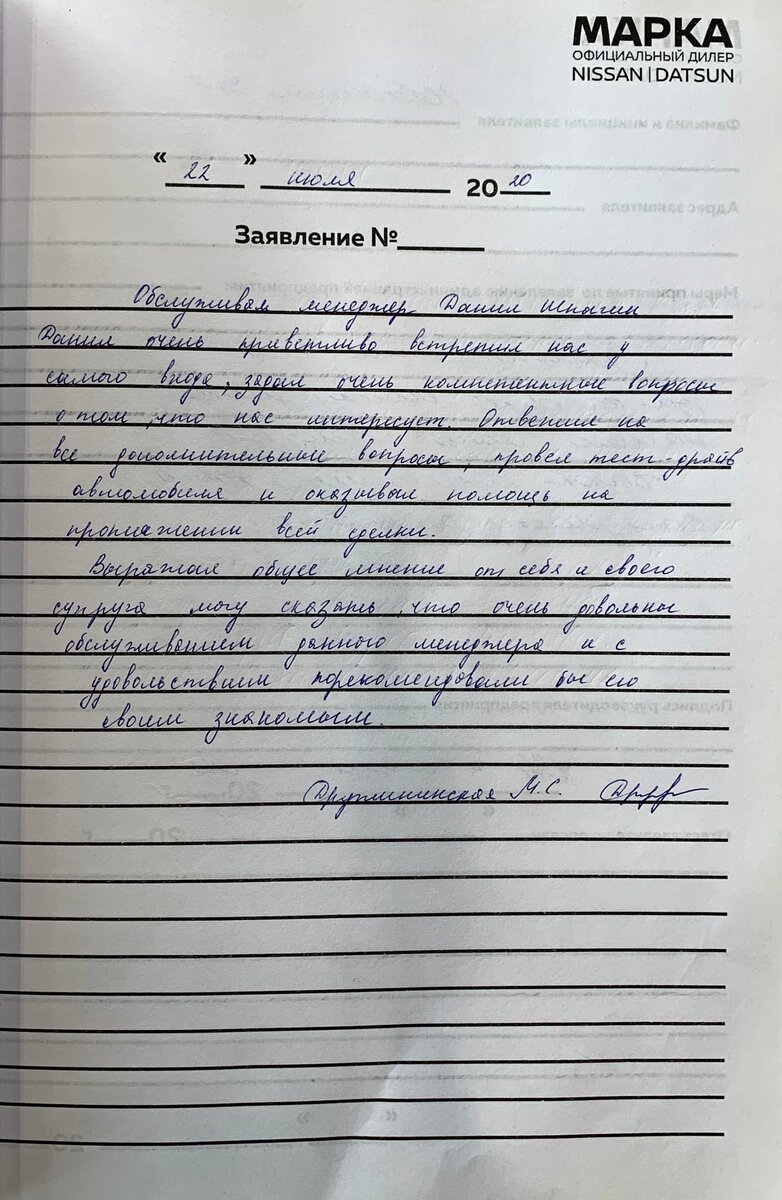 МАРКА
ОФИЦИАЛЬНЫЙ ДИЛЕР
NISSAN | DATSUN
" 22 " июля 20 20
Заявление №
Обслуживал менеджер Данил Шпагин
Данил очень приветливо встретил нас у
самого входа, задал очень компетентные вопросы
о том, что нас интересует. Ответил на
все дополнительные вопросы, провел тест-драйв
автомобиля и оказывал помощь на
протяжении всей сделки.
Выражая общее мнение от себя и своего
супруга могу сказать, что очень довольны
обслуживанием данного менеджера и с
удовольствием порекомендовали бы его
своим знакомым.
М.С.